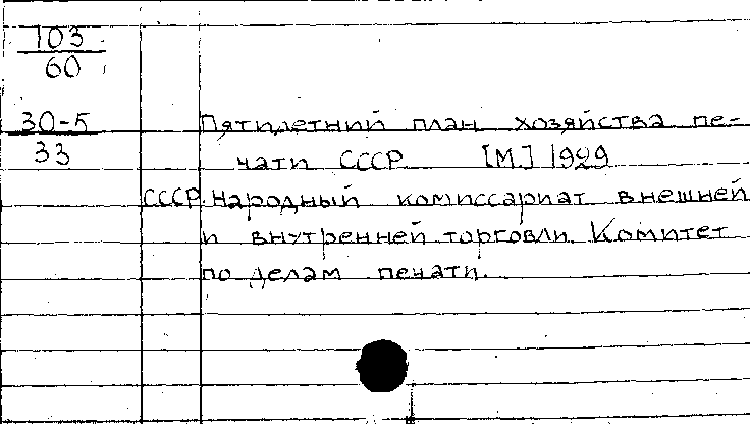 103
60
30-5
33
Пятилетний план хозяйства пе-
чати СССР [М.] 1929
СССР. Народный комиссариат внешней
и внутренней торговли. Комитет
по делам печати.